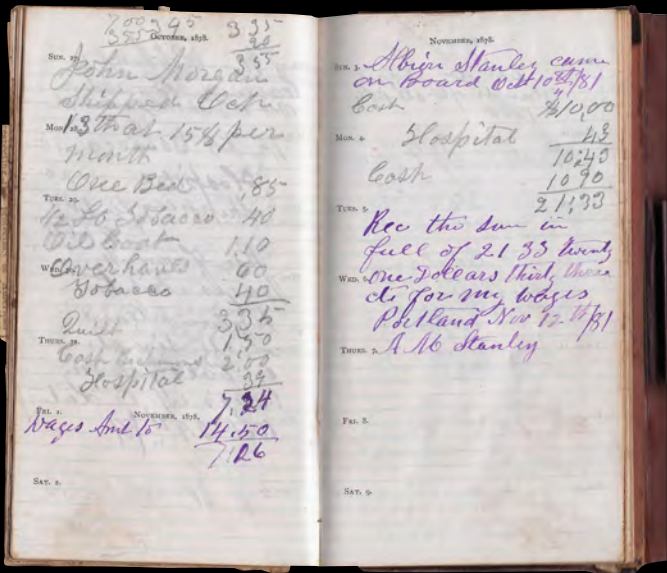 700 345 335
355 20
October, 1878. 355
Sun. 27.
John Morgan
Shipped Oct
Mon. 28.
13th at 15$ per
month
One Bed ,85
Tues. 29.
1/2 Lb Tobacco 40
Oil Coat 1.10
Wed. 30.
Overhauls 60
Tobacco 40
3 35
Quilt 1.50
Thurs. 31.
Cash 2,00
Hospital 39
7,24
Fri. 1. November, 1878.
Wages Amt to 14.50
7,26
Sat. 2.
November, 1878.
Sun. 3. Albion Stanley came
on Board Oct 10th/81
Cash $10,00
Mon. 4. Hospital 43
10,43
Cash 10 90
21,33
Tues. 5.
Rec the sum in
full of 21 33 twenty
Wed. 6. one Dollars thirty three
cts for my wages
Portland Nov 12th/81
Thurs. 7. A M Stanley
Fri. 8.
Sat. 9.